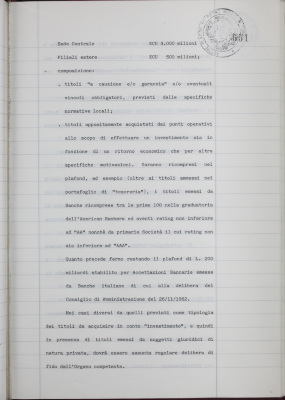 551
Sede Centrale ECU 3.000 milioni
Filiali estere ECU 500 milioni;
- composizione:
. titoli "a cauzione e/o garanzia" e/o eventuali
vincoli obbligatori, previsti dalle specifiche
normative locali;
. titoli appositamente acquistati dai punti operativi
allo scopo di effettuare un investimento sia in
funzione di un ritorno economico che per altre
specifiche motivazioni. Saranno ricompresi nel
plafond, ad esempio (oltre ai titoli ammessi nel
portafoglio di "tesoreria"), i titoli emessi da
Banche ricomprese tra le prime 100 nella graduatoria
dell'American Bankers ed aventi rating non inferiore
ad "AA" nonchè da primarie Società il cui rating non
sia inferiore ad "AAA".
Quanto precede fermo restando il plafond di L. 200
miliardi stabilito per Accettazioni Bancarie emesse
da Banche italiane di cui alla delibera del
Consiglio di Amministrazione del 26/11/1982.
Nei casi diversi da quelli previsti come tipologia
dei titoli da acquisire in conto "investimento", e quindi
in presenza di titoli emessi da soggetti giuridici di
natura privata, dovrà essere assunta regolare delibera di
fido dall'Organo competente.